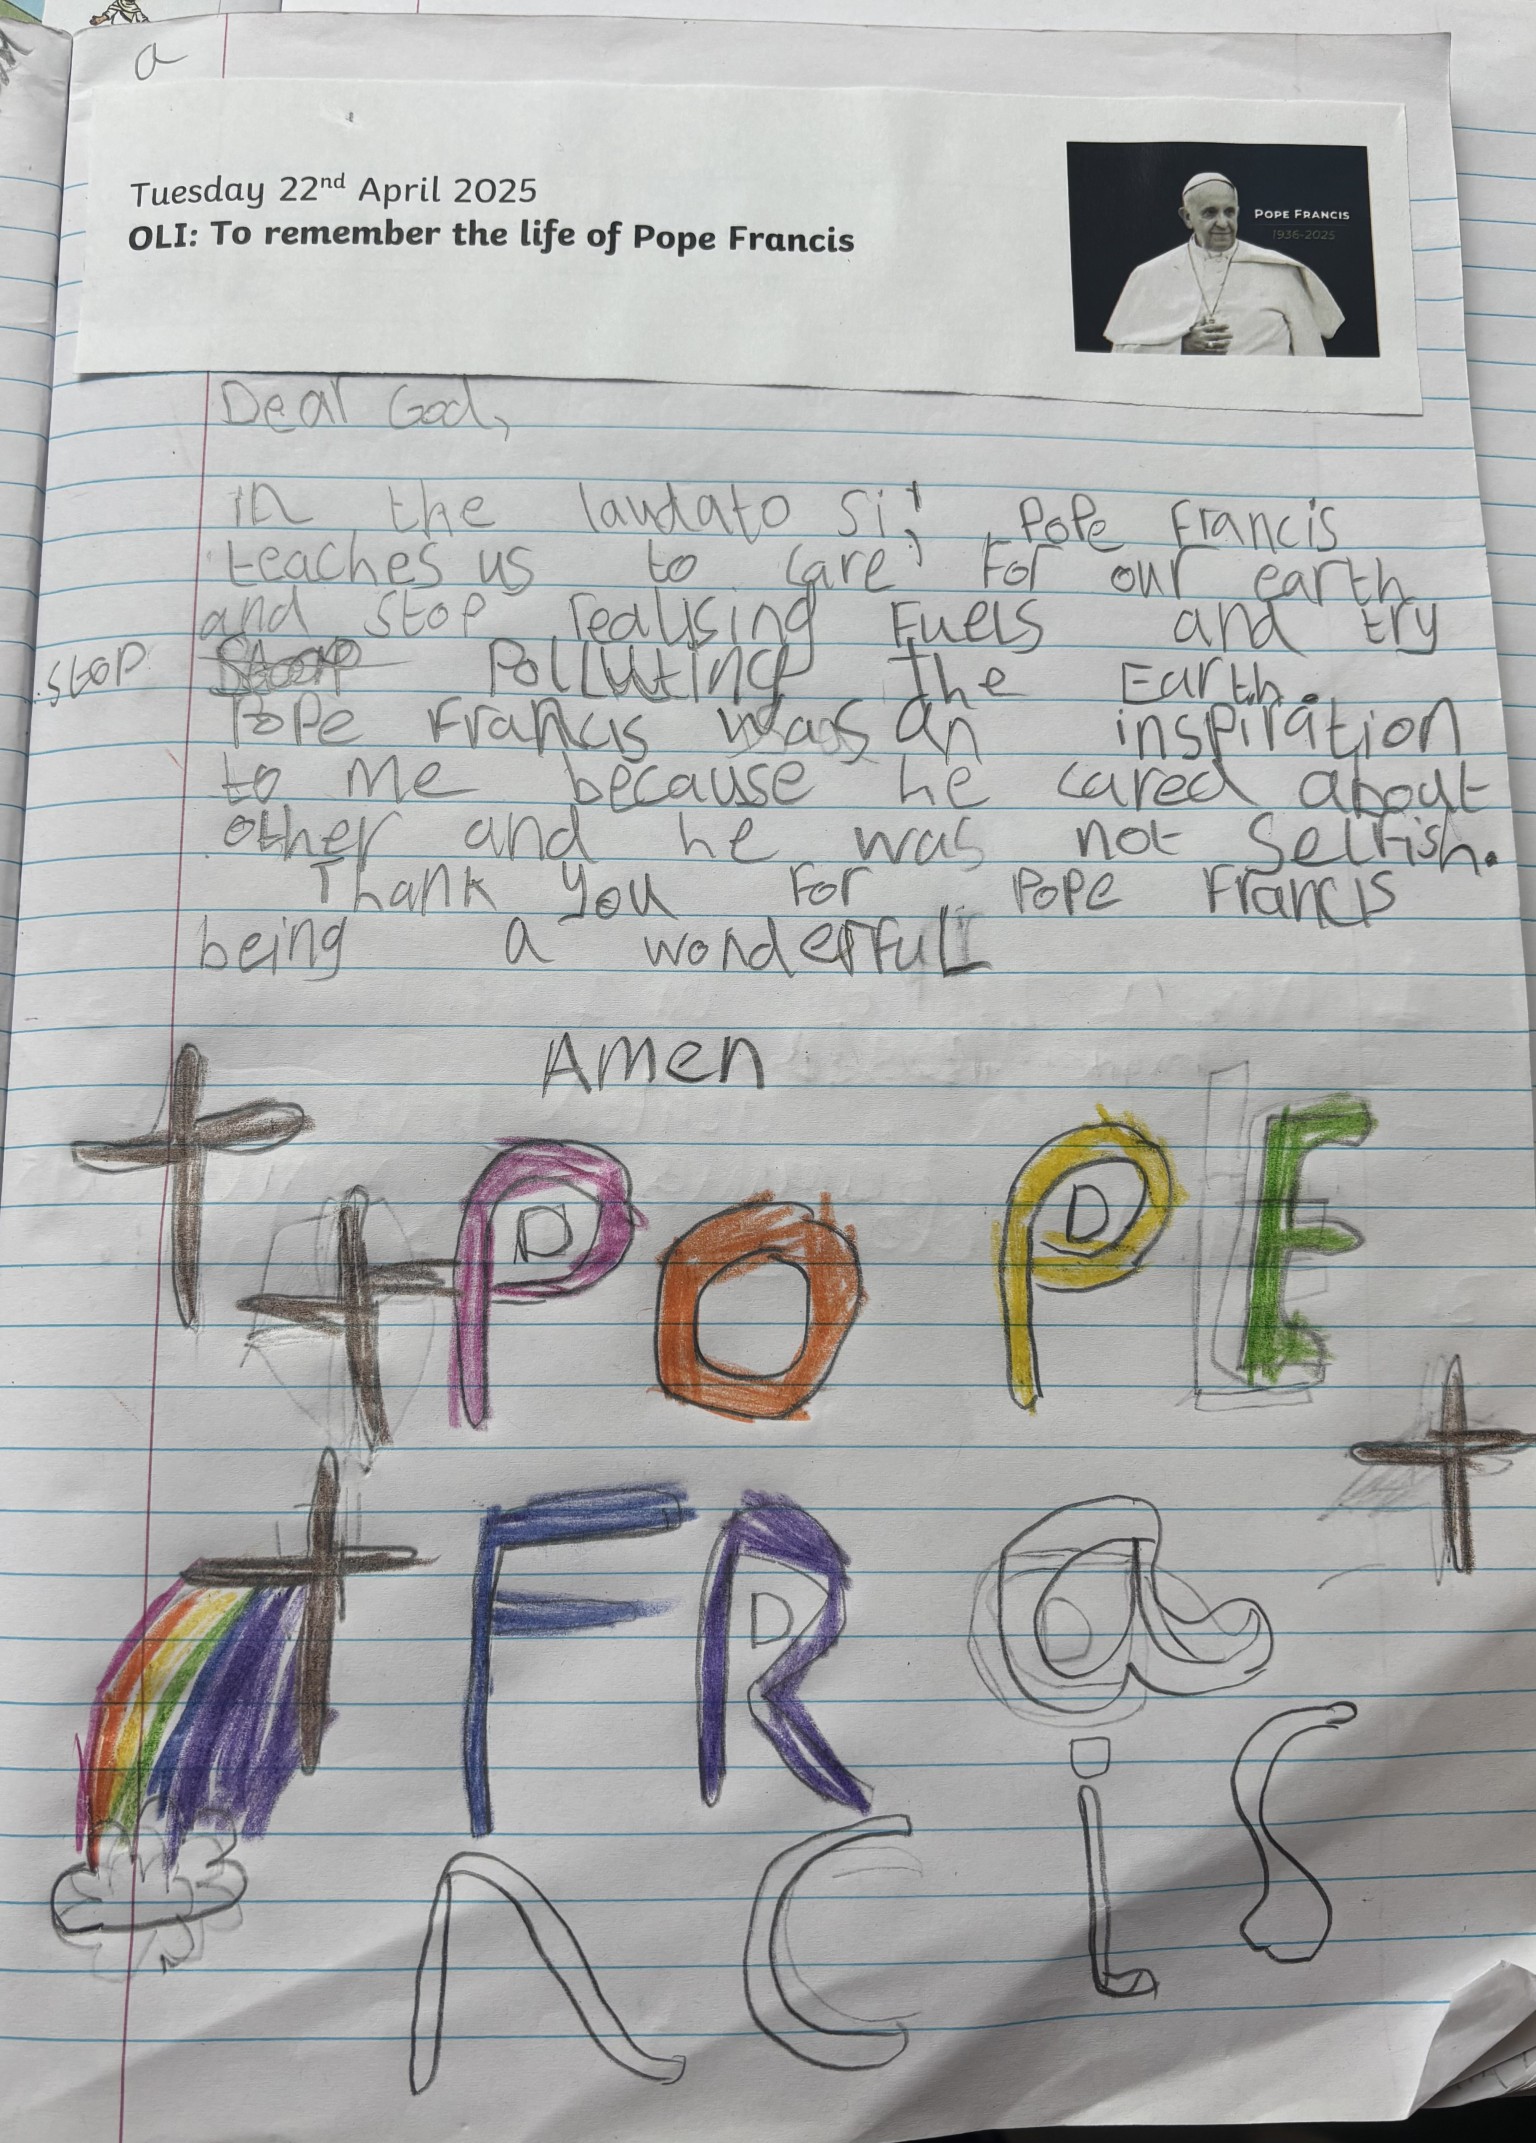 a
Tuesday 22nd April 2025
OLI: To remember the life of Pope Francis
POPE FRANCIS
1936-2025
Dear God,
in the laudato si', Pope Francis
teaches us to care for our earth
and stop realising Fuels and try
stop Polluting the Earth.
Pope Francis was an inspiration
to me because he cared about
other and he was not selfish.
Thank you for Pope Francis
being a wonderful
Amen
POPE
FRa
ncis